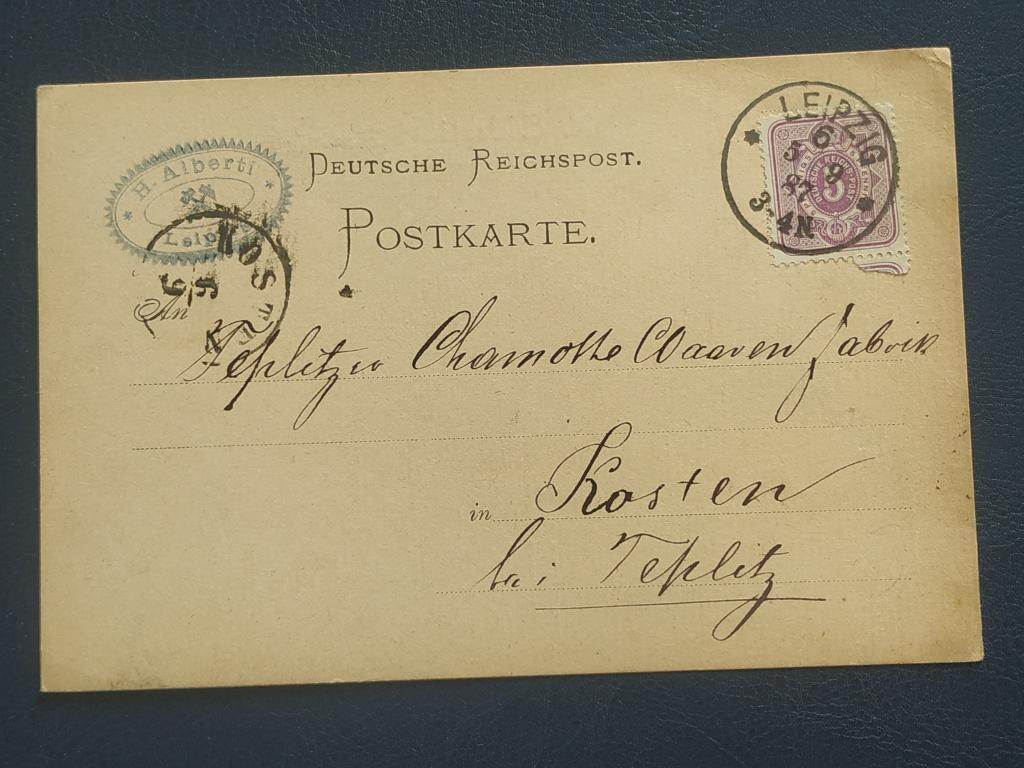 H. Alberti
Leip
DEUTSCHE REICHSPOST.
POSTKARTE.
LEIPZIG
6
5 9
87
3-4N.
DEUTSCHE REICHS-POST
5
KOSTE
6
9
An
Teplitzer Chamotte Waaren Fabrik
in Kosten
bei Teplitz